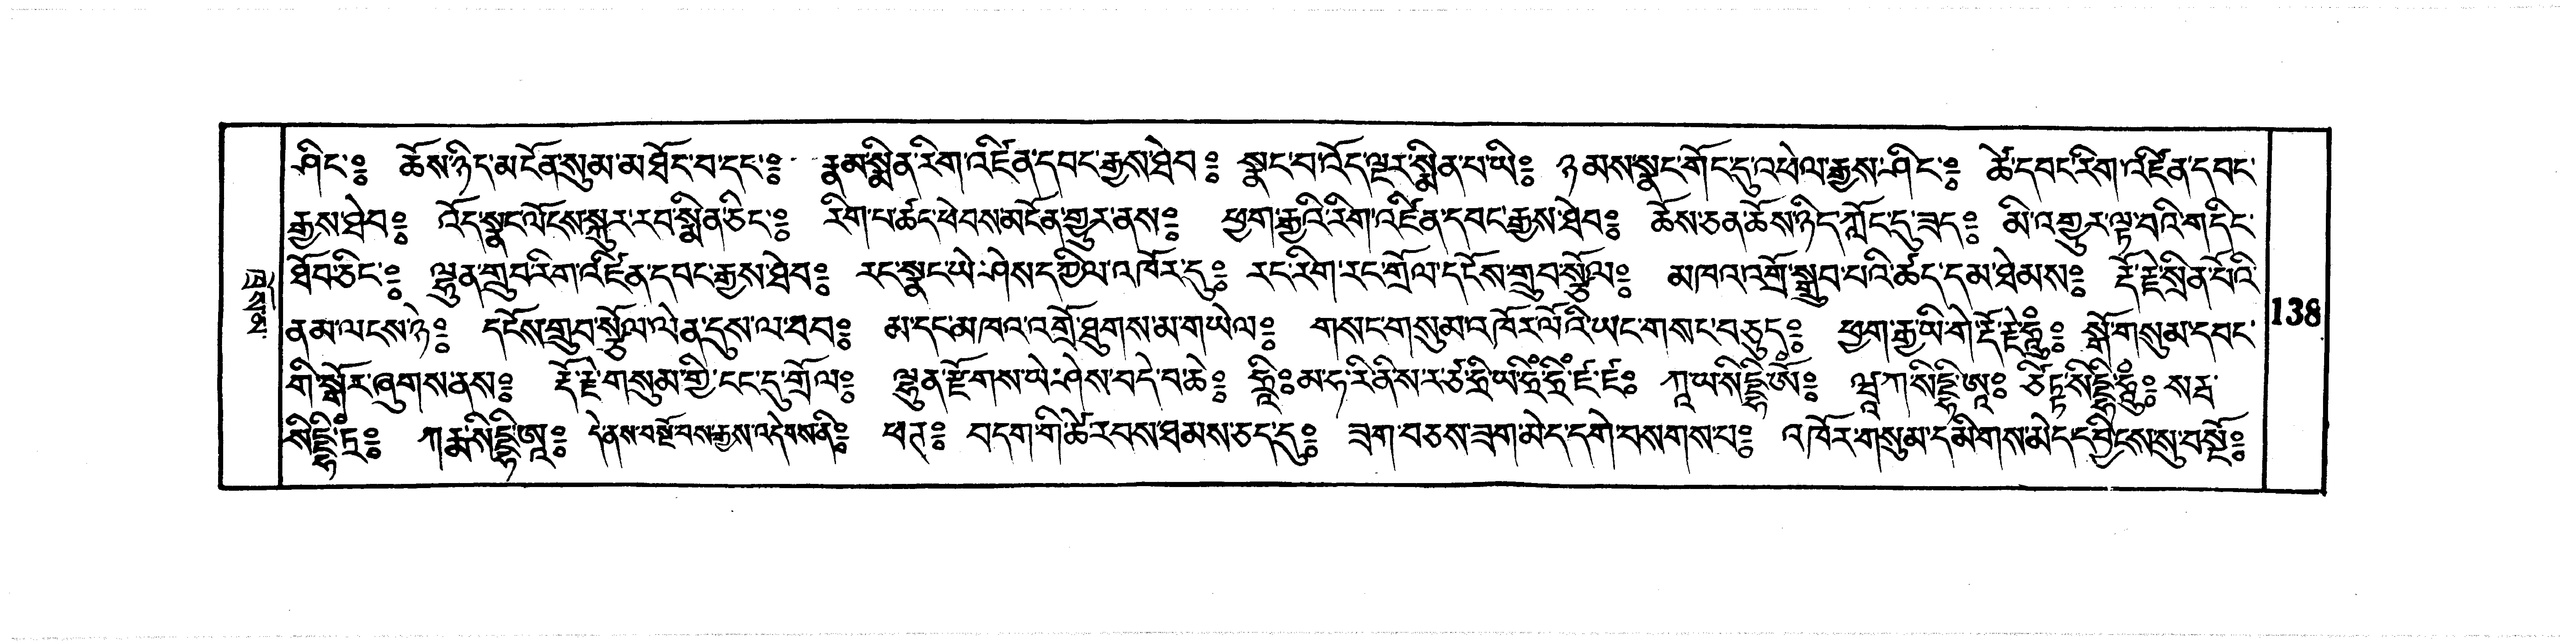 ཤིང་༔ ཆོས་ཉིད་མངོན་སུམ་མཐོང་བ་དང་༔ རྣམ་སྨིན་རིག་འཛིན་དབང་རྒྱས་ཐེབ༔ སྣང་བ་འོད་ལྔར་སྨིན་པ་ཡི༔ ཉམས་སྣང་གོང་དུ་འཕེལ་རྒྱས་ཤིང་༔ ཚེ་དབང་རིག་འཛིན་དབང་
རྒྱས་ཐེབ༔ འོད་སྣང་ལོངས་སྐུར་རབ་སྨིན་ཅིང་༔ རིག་པ་ཚད་ཕེབས་མངོན་གྱུར་ནས༔ ཕྱག་རྒྱའི་རིག་འཛིན་དབང་རྒྱས་ཐེབ༔ ཆོས་ཅན་ཆོས་ཉིད་ཀློང་དུ་ཟད༔ མི་འགྱུར་ལྟ་བའི་གདིང་
ཐོབ་ཅིང་༔ ལྷུན་གྲུབ་རིག་འཛིན་དབང་རྒྱས་ཐེབ༔ རང་སྣང་ཡེ་ཤེས་དཀྱིལ་འཁོར་དུ༔ རང་རིག་རང་གྲོལ་དངོས་གྲུབ་སྩོལ༔ མཁའ་འགྲོ་སྒྲུབ་པའི་ཚད་དམ་ཐེམས༔ རྡོ་རྗེ་སྲིན་པོའི་
ནམ་ལངས་ཏེ༔ དངོས་གྲུབ་སྩོལ་ལེན་དུས་ལ་བབ༔ མ་དང་མཁའ་འགྲོ་ཐུགས་མ་གཡེལ༔ གསང་གསུམ་འཁོར་ལོའི་ཡང་གསང་བཅུད༔ ཕྱག་རྒྱ་ཡི་གེ་རྡོ་རྗེ་ཧཱུྃ༔ སྒོ་གསུམ་དབང་
གི་སྒོར་ཞུགས་ནས༔ རྡོ་རྗེ་གསུམ་གྱི་ངང་དུ་གྲོལ༔ ལྷུན་རྫོགས་ཡེ་ཤེས་བདེ་བ་ཆེ༔ ཀཱ་ཡ་སིདྡྷི་ཨོཾ༔ ཝཱཀ་སིདྡྷི་ཨཱ༔ ཙིཏྟ་སིདྡྷི་ཧཱུྃ༔ སརྦ་
སིདྡྷི་ཧྲཱི༔ ཀརྨ་སིདྡྷི་ཨཱ༔ དེ་ནས་བསྔོ་བས་རྒྱས་འདེབས་ནི༔ ཕཊ༔ བདག་གི་ཚེ་རབས་ཐམས་ཅད་དུ༔ ཟག་བཅས་ཟག་མེད་དགེ་བསགས་པ༔ འཁོར་གསུམ་དམིགས་མེད་དབྱིངས་སུ་བསྔོ༔
138